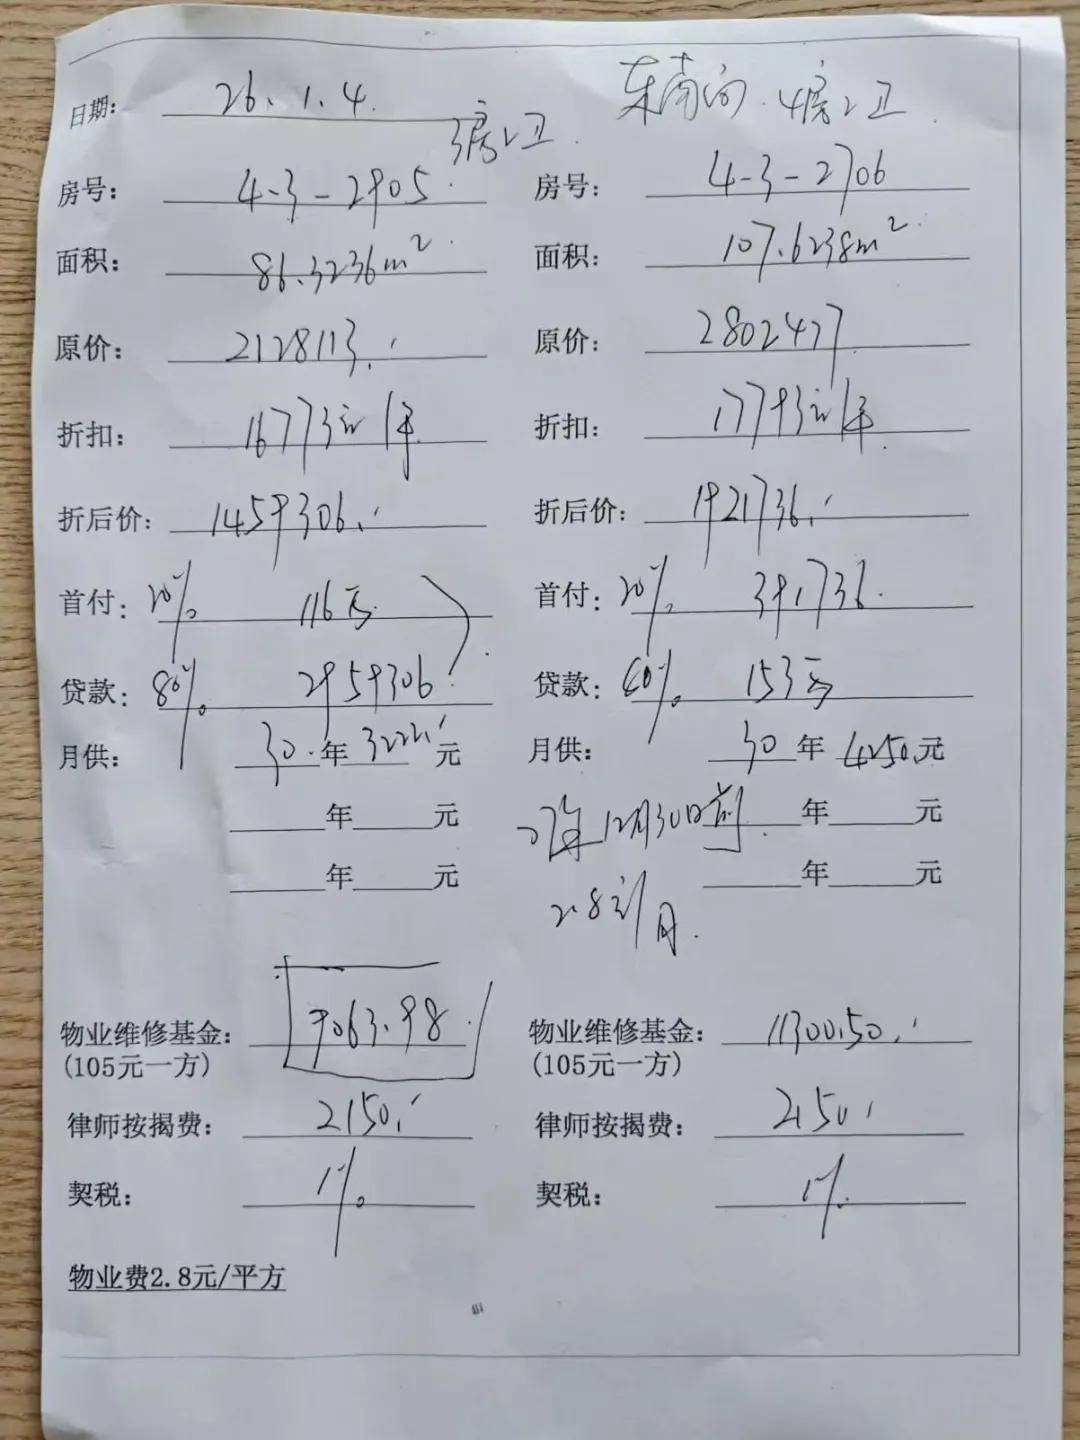 日期: 26.1.4. 3房2卫 东南向.4房2卫
房号: 4-3-2905. 房号: 4-3-2706
面积: 86.3236m². 面积: 107.6238m²
原价: 2128113. 原价: 2802477
折扣: 16773元/平 折扣: 17793元/平
折后价: 1459306. 折后价: 1921736.
首付: 20% 116万. 首付: 20% 391736.
贷款: 80% 2959306 贷款: 80% 153万
月供: 30.年3222.元 月供: 30年4250.元
年 元 27年12月30日前. 年 元
年 元 2.8元/月. 年 元
物业维修基金: 9063.98 物业维修基金: 11300.50.
(105元一方) (105元一方)
律师按揭费: 2150. 律师按揭费: 2150
契税: 1% 契税: 1%.
物业费2.8元/平方